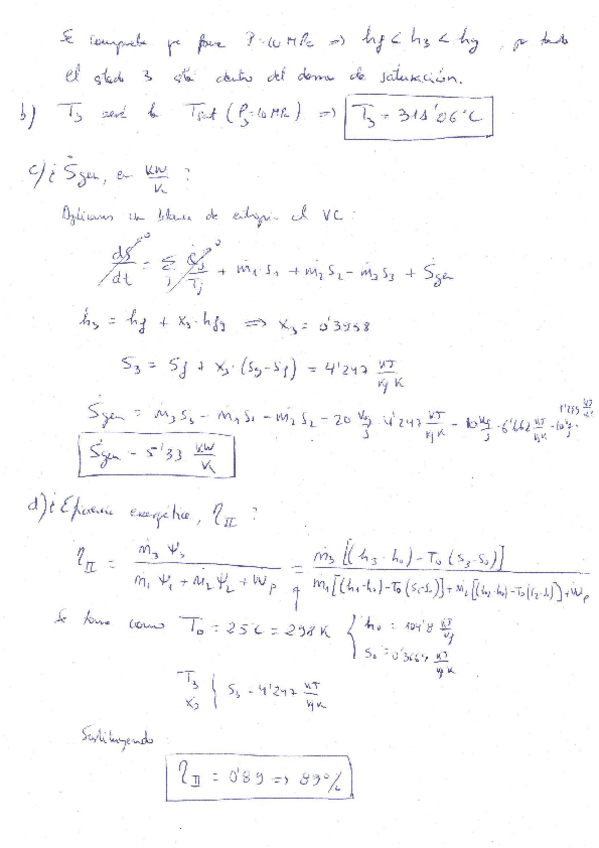 Se comprueba que para P=10 MPa => hf < h3 < hg, por tanto
el estado 3 está dentro del domo de saturación.
b) T3 será la Tsat (P3=10 MPa) => T3 = 311'06°C
c) ¿ Ṡgen, en kW/K ?
Aplicamos un balance de entropía al VC:
dS/dt = Σj Q̇j/Tj + ṁ1·s1 + ṁ2s2 - ṁ3s3 + Ṡgen
h3 = hf + x3·hfg => x3 = 0'3958
s3 = sf + x3·(sg-sf) = 4'247 kJ/kg K
Ṡgen = ṁ3s3 - ṁ1s1 - ṁ2s2 = 20 kg/s · 4'247 kJ/kg K - 10 kg/s · 6'662 kJ/kg K - 10 kg/s ·
Ṡgen = 5'33 kW/K
d) ¿ Eficiencia exergética, ηII ?
ηII = ṁ3 Ψ3 / (ṁ1 Ψ1 + ṁ2 Ψ2 + Ẇp) = ṁ3[(h3-h0)-T0(s3-s0)] / ṁ1[(h1-h0)-T0(s1-s0)] + ṁ2[(h2-h0)-T0(s2-s0)] + Ẇp
Se toma como T0 = 25°C = 298K { h0 = 104'8 kJ/kg
s0 = 0'3664 kJ/kg K
T3
x3 { s3 = 4'247 kJ/kg K
Sustituyendo
ηII = 0'89 => 89%